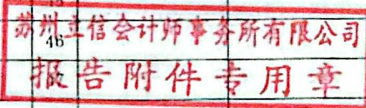 苏州立信会计师事务所有限公司
46
报告附件专用章